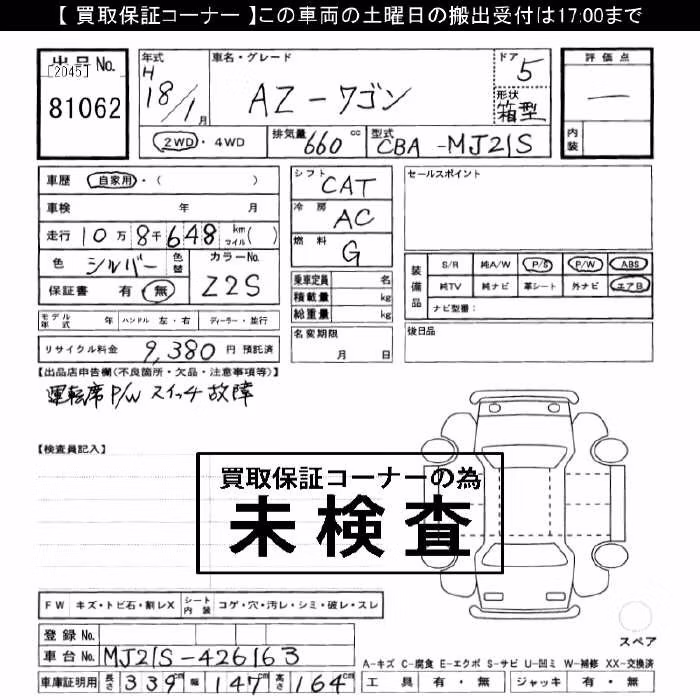 【 買取保証コーナー 】この車両の土曜日の搬出受付は17:00まで
出品No.
[2045]
81062
年式 H 18/1月
車名・グレード AZ-ワゴン
ドア 5
形状 箱型
評価点 —
内装
2WD・4WD
排気量 660 cc
型式 CBA-MJ21S
車歴 自家用・( )
車検 年 月
走行 10万8千648 km マイル( )
色 シルバー 色替
カラーNo. Z2S
保証書 有・無
シフト CAT
冷房 AC
燃料 G
乗車定員 名
積載量 kg
総重量 kg
セールスポイント
装備品
S/R 純A/W P/S P/W ABS
純TV 純ナビ 革シート 外ナビ エアB
ナビ型番:
モデル年式 年 ハンドル 左・右 ディーラー・並行
名変期限 月 日
後日品
リサイクル料金 9,380 円 預託済
【出品店申告欄(不良箇所・欠品・注意事項等)】
運転席P/Wスイッチ故障
【検査員記入】
買取保証コーナーの為
未検査
FW キズ・トビ石・割レX シート内装 コゲ・穴・汚レ・シミ・破レ・スレ
スペア
登録No.
車台No. MJ21S-426163
A-キズ C-腐食 E-エクボ S-サビ U-凹ミ W-補修 XX-交換済
車庫証明用 長さ 339cm 幅 147cm 高さ 164cm
工具 有・無 ジャッキ 有・無